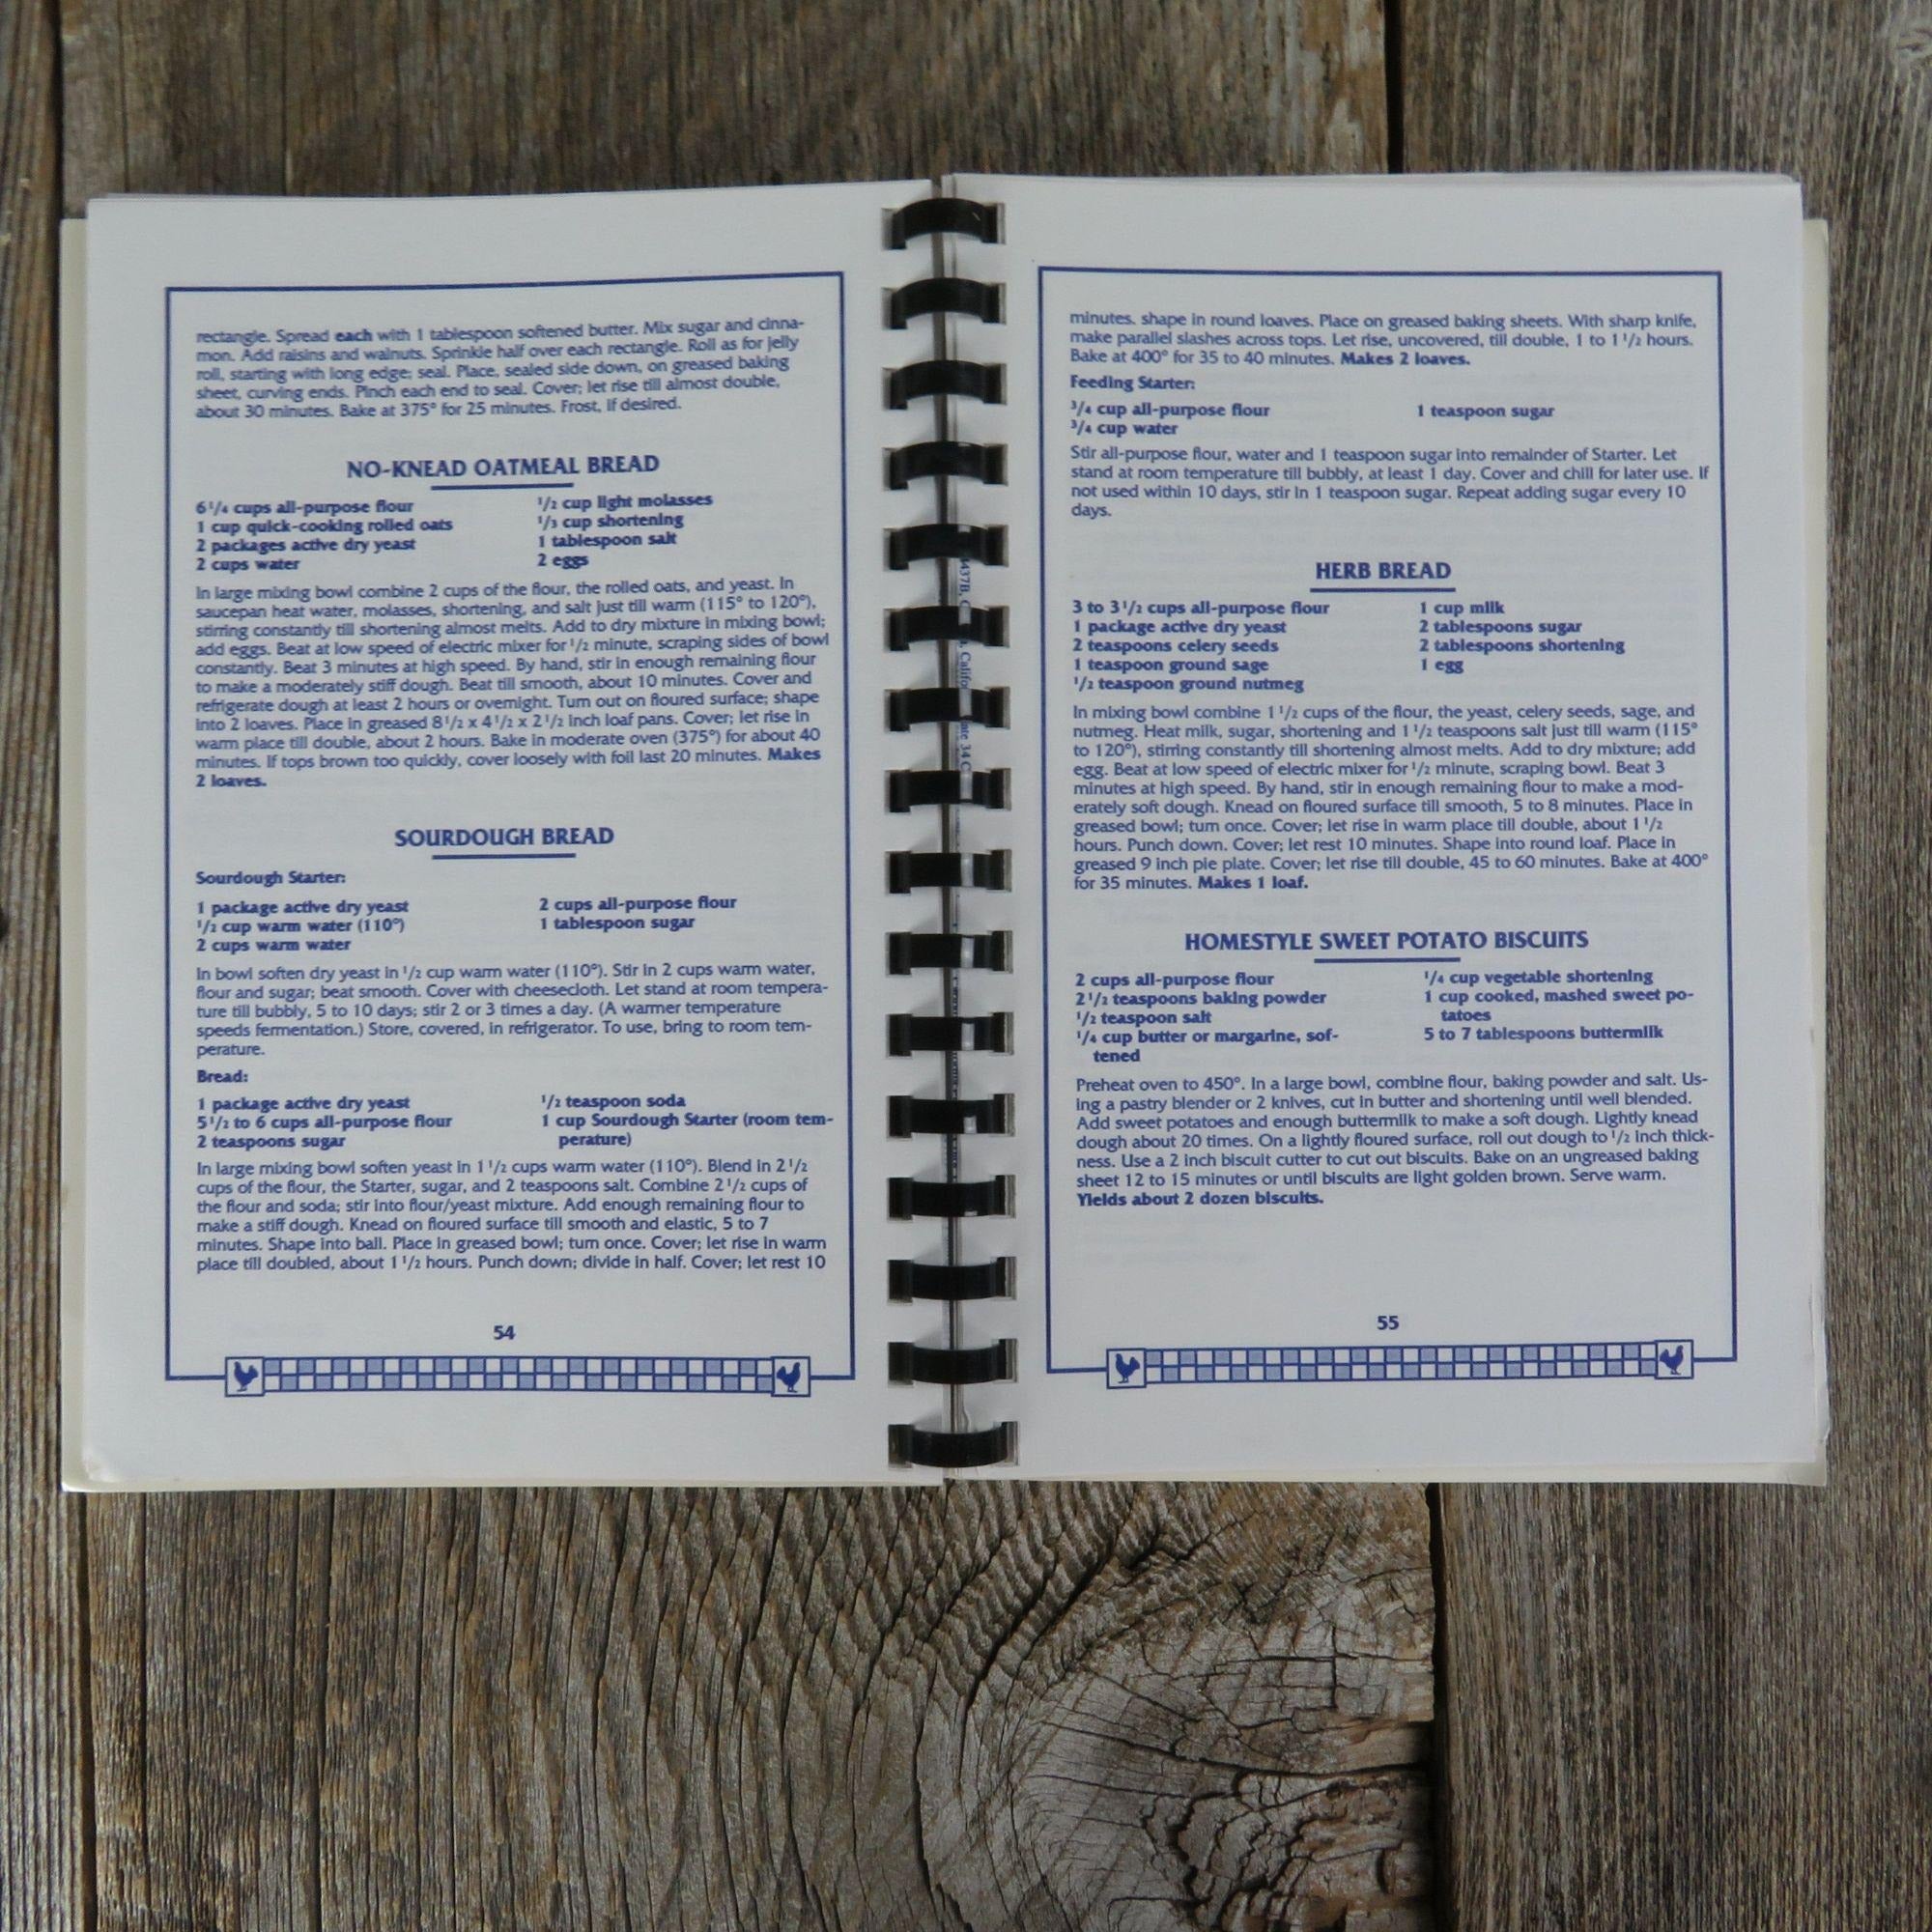 rectangle. Spread each with 1 tablespoon softened butter. Mix sugar and cinna-
mon. Add raisins and walnuts. Sprinkle half over each rectangle. Roll as for jelly
roll, starting with long edge; seal. Place, sealed side down, on greased baking
sheet, curving ends. Pinch each end to seal. Cover; let rise till almost double,
about 30 minutes. Bake at 375° for 25 minutes. Frost, if desired.
NO-KNEAD OATMEAL BREAD
6 1/4 cups all-purpose flour
1 cup quick-cooking rolled oats
2 packages active dry yeast
2 cups water
1/2 cup light molasses
1/3 cup shortening
1 tablespoon salt
2 eggs
In large mixing bowl combine 2 cups of the flour, the rolled oats, and yeast. In
saucepan heat water, molasses, shortening, and salt just till warm (115° to 120°),
stirring constantly till shortening almost melts. Add to dry mixture in mixing bowl;
add eggs. Beat at low speed of electric mixer for 1/2 minute, scraping sides of bowl
constantly. Beat 3 minutes at high speed. By hand, stir in enough remaining flour
to make a moderately stiff dough. Beat till smooth, about 10 minutes. Cover and
refrigerate dough at least 2 hours or overnight. Turn out on floured surface; shape
into 2 loaves. Place in greased 8 1/2 x 4 1/2 x 2 1/2 inch loaf pans. Cover; let rise in
warm place till double, about 2 hours. Bake in moderate oven (375°) for about 40
minutes. If tops brown too quickly, cover loosely with foil last 20 minutes. Makes
2 loaves.
SOURDOUGH BREAD
Sourdough Starter:
1 package active dry yeast
1/2 cup warm water (110°)
2 cups warm water
2 cups all-purpose flour
1 tablespoon sugar
In bowl soften dry yeast in 1/2 cup warm water (110°). Stir in 2 cups warm water,
flour and sugar; beat smooth. Cover with cheesecloth. Let stand at room tempera-
ture till bubbly, 5 to 10 days; stir 2 or 3 times a day. (A warmer temperature
speeds fermentation.) Store, covered, in refrigerator. To use, bring to room tem-
perature.
Bread:
1 package active dry yeast
5 1/2 to 6 cups all-purpose flour
2 teaspoons sugar
1/2 teaspoon soda
1 cup Sourdough Starter (room tem-
perature)
In large mixing bowl soften yeast in 1 1/2 cups warm water (110°). Blend in 2 1/2
cups of the flour, the Starter, sugar, and 2 teaspoons salt. Combine 2 1/2 cups of
the flour and soda; stir into flour/yeast mixture. Add enough remaining flour to
make a stiff dough. Knead on floured surface till smooth and elastic, 5 to 7
minutes. Shape into ball. Place in greased bowl; turn once. Cover; let rise in warm
place till doubled, about 1 1/2 hours. Punch down; divide in half. Cover; let rest 10
54
minutes. shape in round loaves. Place on greased baking sheets. With sharp knife,
make parallel slashes across tops. Let rise, uncovered, till double, 1 to 1 1/2 hours.
Bake at 400° for 35 to 40 minutes. Makes 2 loaves.
Feeding Starter:
3/4 cup all-purpose flour
3/4 cup water
1 teaspoon sugar
Stir all-purpose flour, water and 1 teaspoon sugar into remainder of Starter. Let
stand at room temperature till bubbly, at least 1 day. Cover and chill for later use. If
not used within 10 days, stir in 1 teaspoon sugar. Repeat adding sugar every 10
days.
HERB BREAD
3 to 3 1/2 cups all-purpose flour
1 package active dry yeast
2 teaspoons celery seeds
1 teaspoon ground sage
1/2 teaspoon ground nutmeg
1 cup milk
2 tablespoons sugar
2 tablespoons shortening
1 egg
In mixing bowl combine 1 1/2 cups of the flour, the yeast, celery seeds, sage, and
nutmeg. Heat milk, sugar, shortening and 1 1/2 teaspoons salt just till warm (115°
to 120°), stirring constantly till shortening almost melts. Add to dry mixture; add
egg. Beat at low speed of electric mixer for 1/2 minute, scraping bowl. Beat 3
minutes at high speed. By hand, stir in enough remaining flour to make a mod-
erately soft dough. Knead on floured surface till smooth, 5 to 8 minutes. Place in
greased bowl; turn once. Cover; let rise in warm place till double, about 1 1/2
hours. Punch down. Cover; let rest 10 minutes. Shape into round loaf. Place in
greased 9 inch pie plate. Cover; let rise till double, 45 to 60 minutes. Bake at 400°
for 35 minutes. Makes 1 loaf.
HOMESTYLE SWEET POTATO BISCUITS
2 cups all-purpose flour
2 1/2 teaspoons baking powder
1/2 teaspoon salt
1/4 cup butter or margarine, sof-
tened
1/4 cup vegetable shortening
1 cup cooked, mashed sweet po-
tatoes
5 to 7 tablespoons buttermilk
Preheat oven to 450°. In a large bowl, combine flour, baking powder and salt. Us-
ing a pastry blender or 2 knives, cut in butter and shortening until well blended.
Add sweet potatoes and enough buttermilk to make a soft dough. Lightly knead
dough about 20 times. On a lightly floured surface, roll out dough to 1/2 inch thick-
ness. Use a 2 inch biscuit cutter to cut out biscuits. Bake on an ungreased baking
sheet 12 to 15 minutes or until biscuits are light golden brown. Serve warm.
Yields about 2 dozen biscuits.
55